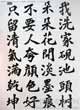 我洗家硯池頭樹
朵朵花開淡墨痕
不要人夸顏色好
只留清氣滿乾坤